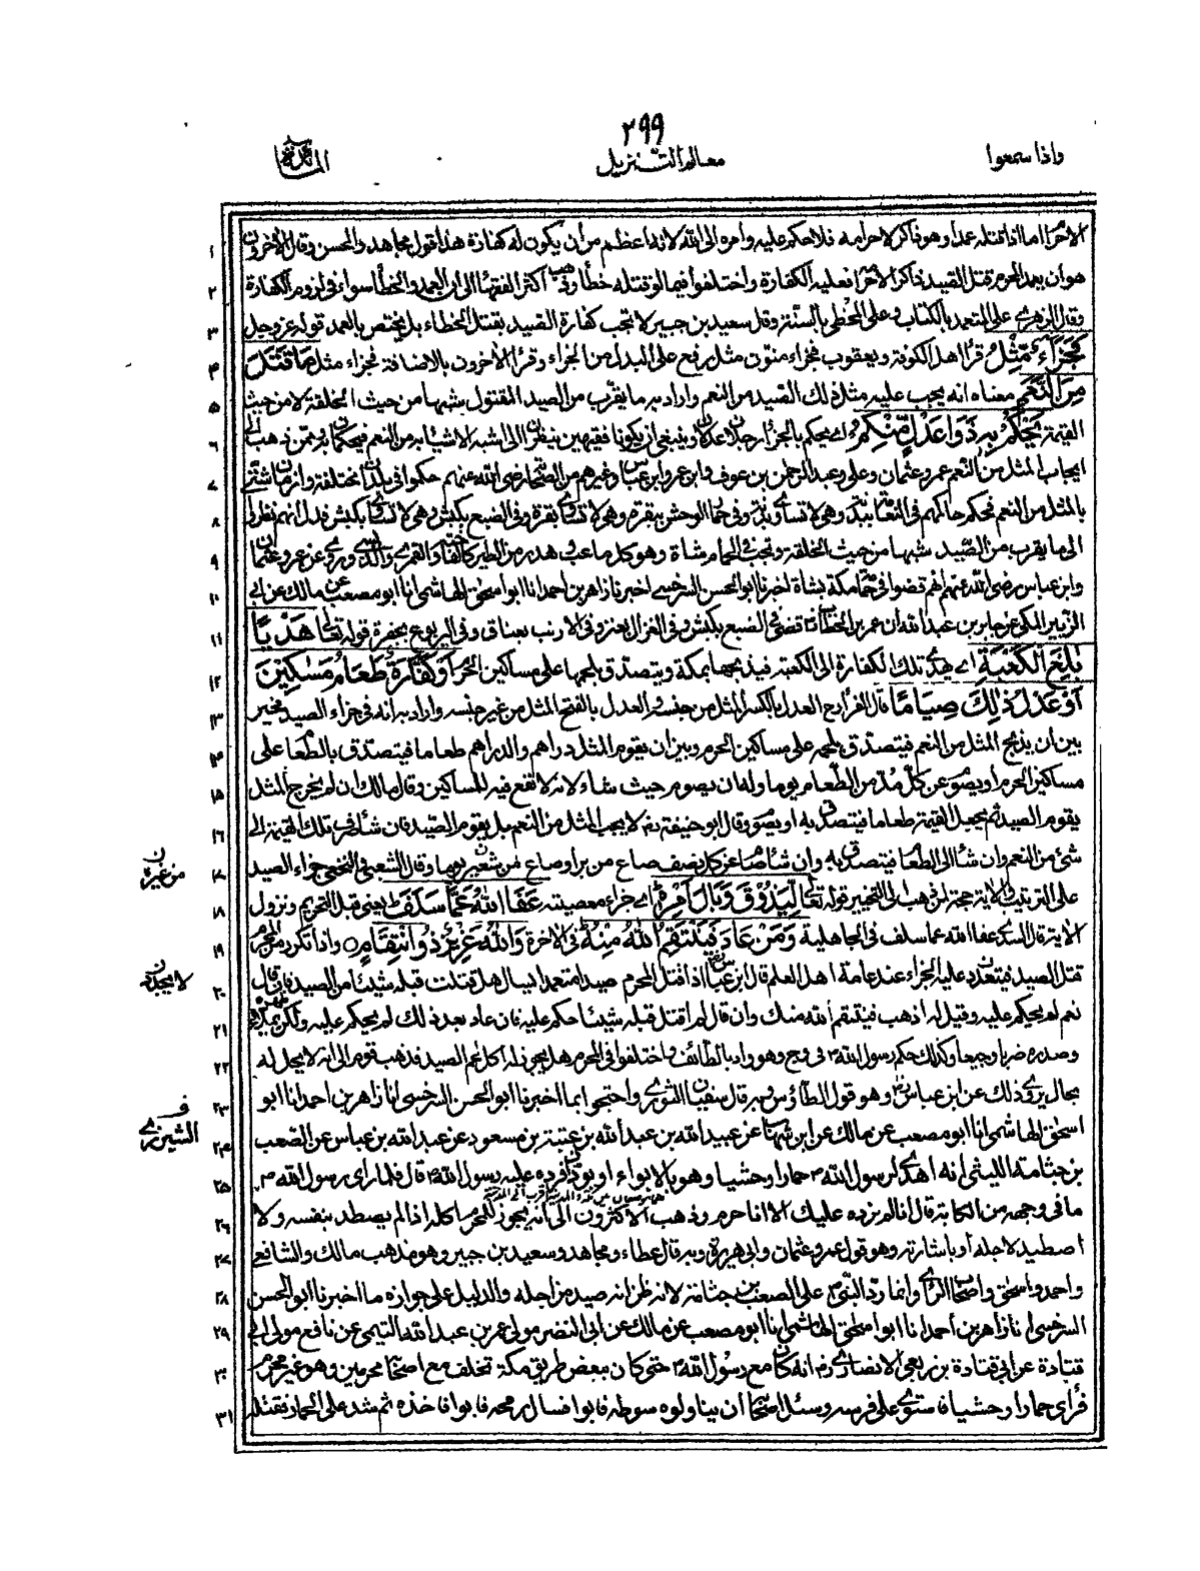 ٢٩٩
واذا سمعوا
معالم التنزيل
المائدة
الاحرام اما اذا قتله عمدا وهو ذاكر لاحرامه فلا حكم عليه وامره الى الله لانه اعظم من ان يكون له كفارة هذا قول مجاهد والحسن وقال الاخرون ١
هو ان يعمد المحرم قتل الصيد ذاكرا لاحرامه فعليه الكفارة واختلفوا فيما لو قتله خطأ وذهب اكثر الفقهاء الى ان العمد والخطأ سواء فى لزوم الكفارة ٢
وقال الزهرى على المتعمد بالكتاب وعلى المخطى بالسنة وقال سعيد بن جبير لا تجب كفارة الصيد بقتل الخطاء بل يختص بالعمد قوله عز وجل ٣
فَجَزَآءٌ مِّثْلُ قرأ اهل الكوفة ويعقوب فجزاء منون مثل رفع على البدل من الجزاء وقرأ الاخرون بالاضافة فجزاء مثل مَا قَتَلَ ٤
مِنَ النَّعَمِ معناه انه يجب عليه مثل ذلك الصيد من النعم واراد به ما يقرب من الصيد المقتول شبها من حيث الخلقة لا من حيث ٥
القيمة يَحْكُمُ بِهٖ ذَوَا عَدْلٍ مِّنْكُمْ اى يحكم بالجزاء رجلان عدلان وينبغى ان يكونا فقيهين ينظران الى اشبه الاشياء به من النعم فيحكمان به وممن ذهب الى ٦
ايجاب المثل من النعم عمر وعثمان وعلى وعبد الرحمن بن عوف وابن عمر وابن عباس وغيرهم من الصحابة رضى الله عنهم حكموا فى بلدان مختلفة وازمان شتى ٧
بالمثل من النعم فحكم حاكمهم فى النعامة ببدنة وهى لا تساوى بدنة وفى حمار الوحش ببقرة وهى لا تساوى بقرة وفى الضبع بكبش وهى لا تساوى بكبش فدل انهم نظروا ٨
الى ما يقرب من الصيد شبها من حيث الخلقة وتجب فى الحمام شاة وهو كل ما عب وهدر من الطير كالفاختة والقمرى والدبسى وروى عن عمر وعثمان ٩
وابن عباس رضى الله عنهم انهم قضوا فى حمام مكة بشاة اخبرنا ابو الحسن السرخسى اخبرنا زاهر بن احمد انا ابو اسحق الهاشمى انا ابو مصعب عن مالك عن ابى ١٠
الزبير المكى عن جابر بن عبد الله ان عمر بن الخطاب رض قضى فى الضبع بكبش وفى الغزال بعنز وفى الارنب بعناق وفى اليربوع بجفرة قوله تعالى هَدْيًا ١١
بٰلِغَ الْكَعْبَةِ اى يهدى تلك الكفارة الى الكعبة فيذبحها بمكة ويتصدق بلحمها على مساكين الحرم اَوْ كَفَّارَةٌ طَعَامُ مَسٰكِيْنَ ١٢
اَوْ عَدْلُ ذٰلِكَ صِيَامًا قال الفراء رح العدل بالكسر المثل من جنسه والعدل بالفتح المثل من غير جنسه واراد به انه فى جزاء الصيد مخير ١٣
بين ان يذبح المثل من النعم فيتصدق بلحمه على مساكين الحرم وبين ان يقوم المثل دراهم والدراهم طعاما فيتصدق بالطعام على ١٤
مساكين الحرم او يصوم عن كل مد من الطعام يوما وله ان يصوم حيث شاء لانه لا نفع فيه للمساكين وقال مالك ان لم يخرج المثل ١٥
يقوم الصيد ثم يجعل القيمة طعاما فيتصدق به او يصوم وقال ابو حنيفة رض لا يجب المثل من النعم بل يقوم الصيد فان شاء صرف تلك القيمة الى ١٦
شئ من النعم وان شاء الى الطعام فيتصدق به وان شاء صام عن كل نصف صاع من بر او صاع من شعير يوما وقال الشعبى والنخعى جزاء الصيد ١٧
من غيره ن
على الترتيب والاية حجة لمن ذهب الى التخيير قوله تعالى لِيَذُوْقَ وَبَالَ اَمْرِهٖ اى جزاء معصيته عَفَا اللهُ عَمَّا سَلَفَ يعنى قبل التحريم ونزول ١٨
الاية قال السدى عفا الله عما سلف فى الجاهلية وَمَنْ عَادَ فَيَنْتَقِمُ اللهُ مِنْهُ فى الاخرة وَاللهُ عَزِيْزٌ ذُو انْتِقَامٍ واذا تكرر من المحرم ١٩
قتل الصيد فيتعدد عليه الجزاء عند عامة اهل العلم قال ابن عباس رض اذا قتل المحرم صيدا متعمدا يسال هل قتلت قبله شيئا من الصيد فان قال ٢٠
نعم لم يحكم عليه وقيل له اذهب فينتقم الله منك وان قال لم اقتل قبله شيئا حكم عليه فان عاد بعد ذلك لم يحكم عليه ولكن يملأ ظهره ٢١
وصدره ضربا وجيعا وكذلك حكم رسول الله ص فى وج وهو واد بالطائف واختلفوا فى المحرم هل يجوز له اكل لحم الصيد فذهب قوم الى انه لا يحل له ٢٢
بحال يروى ذلك عن ابن عباس رض وهو قول طاؤس وبه قال سفيان الثورى واحتجوا بما اخبرنا ابو الحسن السرخسى انا زاهر بن احمد انا ابو ٢٣
اسحق الهاشمى انا ابو مصعب عن مالك عن ابن شهاب عن عبيد الله بن عبد الله بن عتبة بن مسعود عن عبد الله بن عباس عن الصعب ٢٤
بن جثامة الليثى انه اهدى لرسول الله ص حمارا وحشيا وهو بالابواء او بودان فرده عليه رسول الله ص قال فلما راى رسول الله ص ٢٥
ما فى وجهه من الكابة قال انا لم نرده عليك الا انا حرم وذهب الاكثرون الى انه يجوز للمحرم اكله اذا لم يصطد بنفسه ولا ٢٦
اصطيد لاجله او باشارته وهو قول عمر وعثمان وابى هريرة وبه قال عطاء ومجاهد وسعيد بن جبير وهو مذهب مالك والشافعى ٢٧
واحمد واسحق واصحاب الراى وانما رد النبى ص على الصعب بن جثامة لانه ظن انه صيد من اجله والدليل على جوازه ما اخبرنا ابو الحسن ٢٨
السرخسى انا زاهر بن احمد انا ابو اسحق الهاشمى انا ابو مصعب عن مالك عن ابى النضر مولى عمر بن عبد الله التيمى عن نافع مولى ابى ٢٩
قتادة عن ابى قتادة بن ربعى الانصارى رض انه كان مع رسول الله ص حتى كان ببعض طريق مكة تخلف مع اصحاب محرمين وهو غير محرم ٣٠
فرأى حمارا وحشيا فاستوى على فرسه وسئل اصحابه ان يناولوه سوطه فابوا فسالهم رمحه فابوا فاخذه ثم شد على الحمار فقتله ٣١